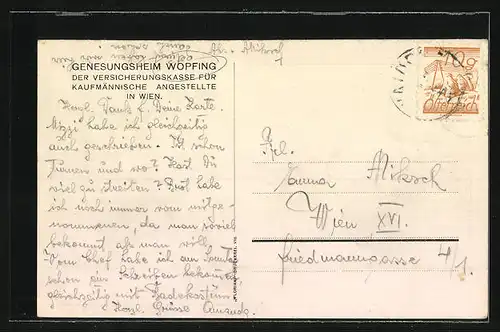 GENESUNGSHEIM WOPFING
DER VERSICHERUNGSKASSE FÜR
KAUFMÄNNISCHE ANGESTELLTE
IN WIEN.
Herzl. Dank f. Deine Karte.
Mizzi habe ich gleichzeitig
auch geschrieben. Ist schon
Turnen und wo? Hast Du
viel zu streiten? Brot habe
ich noch immer vom mitge-
nommenen, da man soviel
bekommt, als man will.
Vom Chef habe ich am Samstag
schon ein Schreiben bekommen
gleichzeitig mit Badekostüm
Herzl. Grüsse
Abs.:
Frl.
Miksch
Wien XVI.
Friedmanngasse 4/1.
9
Österreich